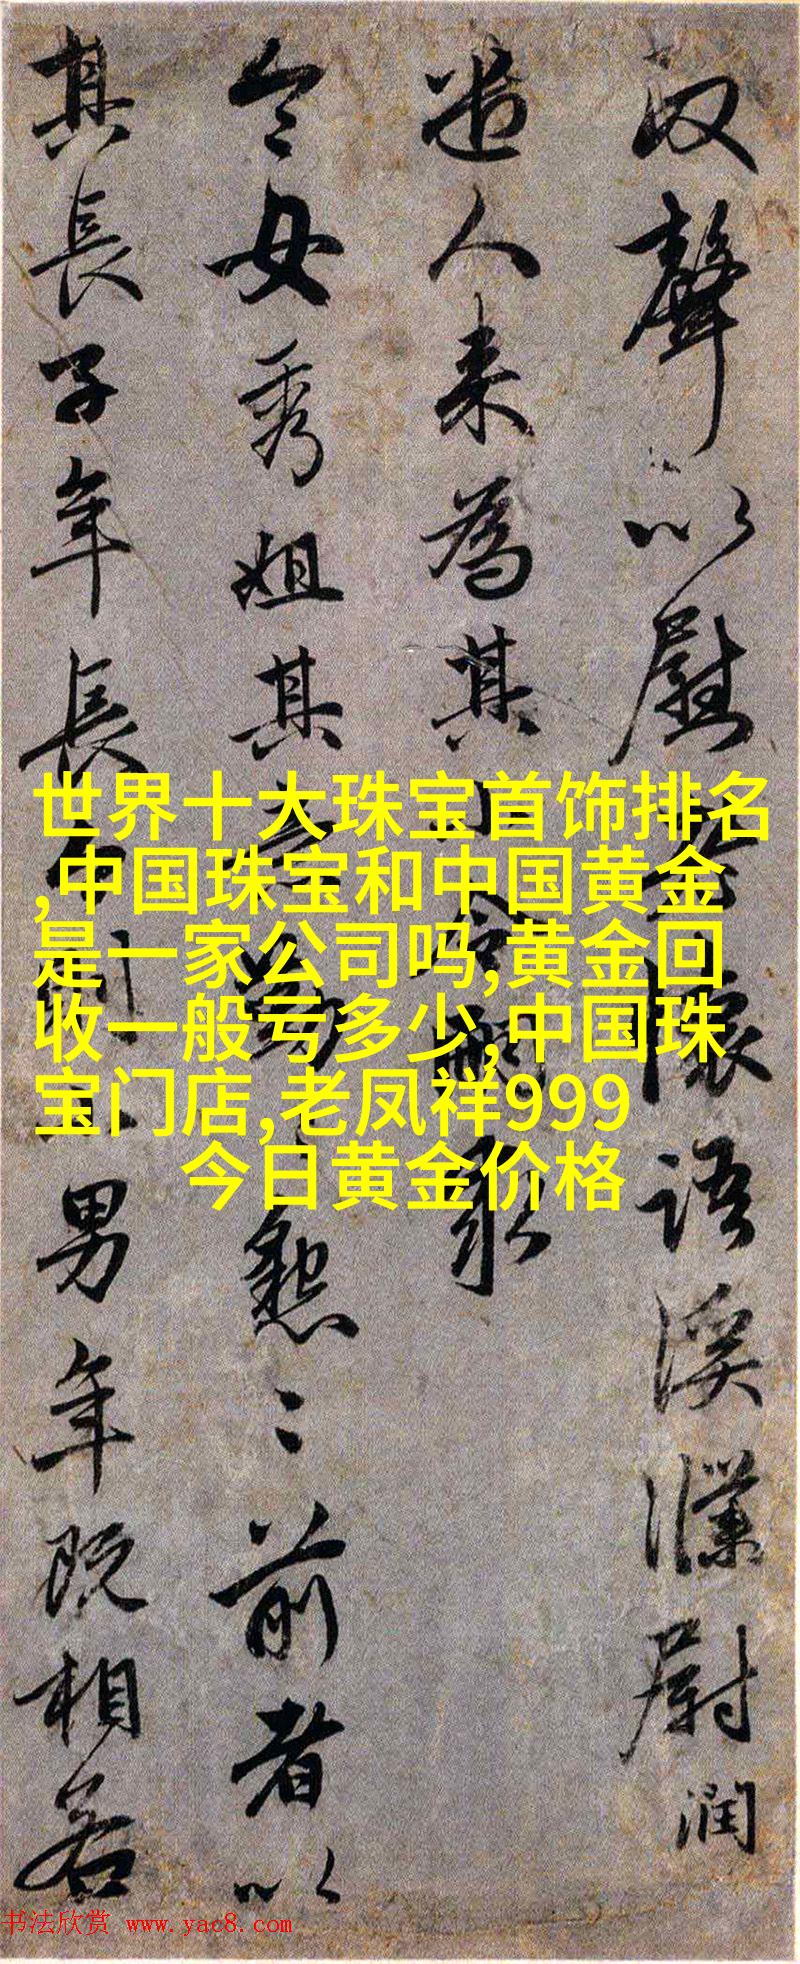 聲以慰懷語溪濮尉潤
人来為其求
令女秀姐其懇〻前者以
其長子年長男年既相若
世界十大珠宝首饰排名
,中国珠宝和中国黄金
是一家公司吗,黄金回
收一般亏多少,中国珠
宝门店,老凤祥999
今日黄金价格
书法欣赏 www.yac8.com